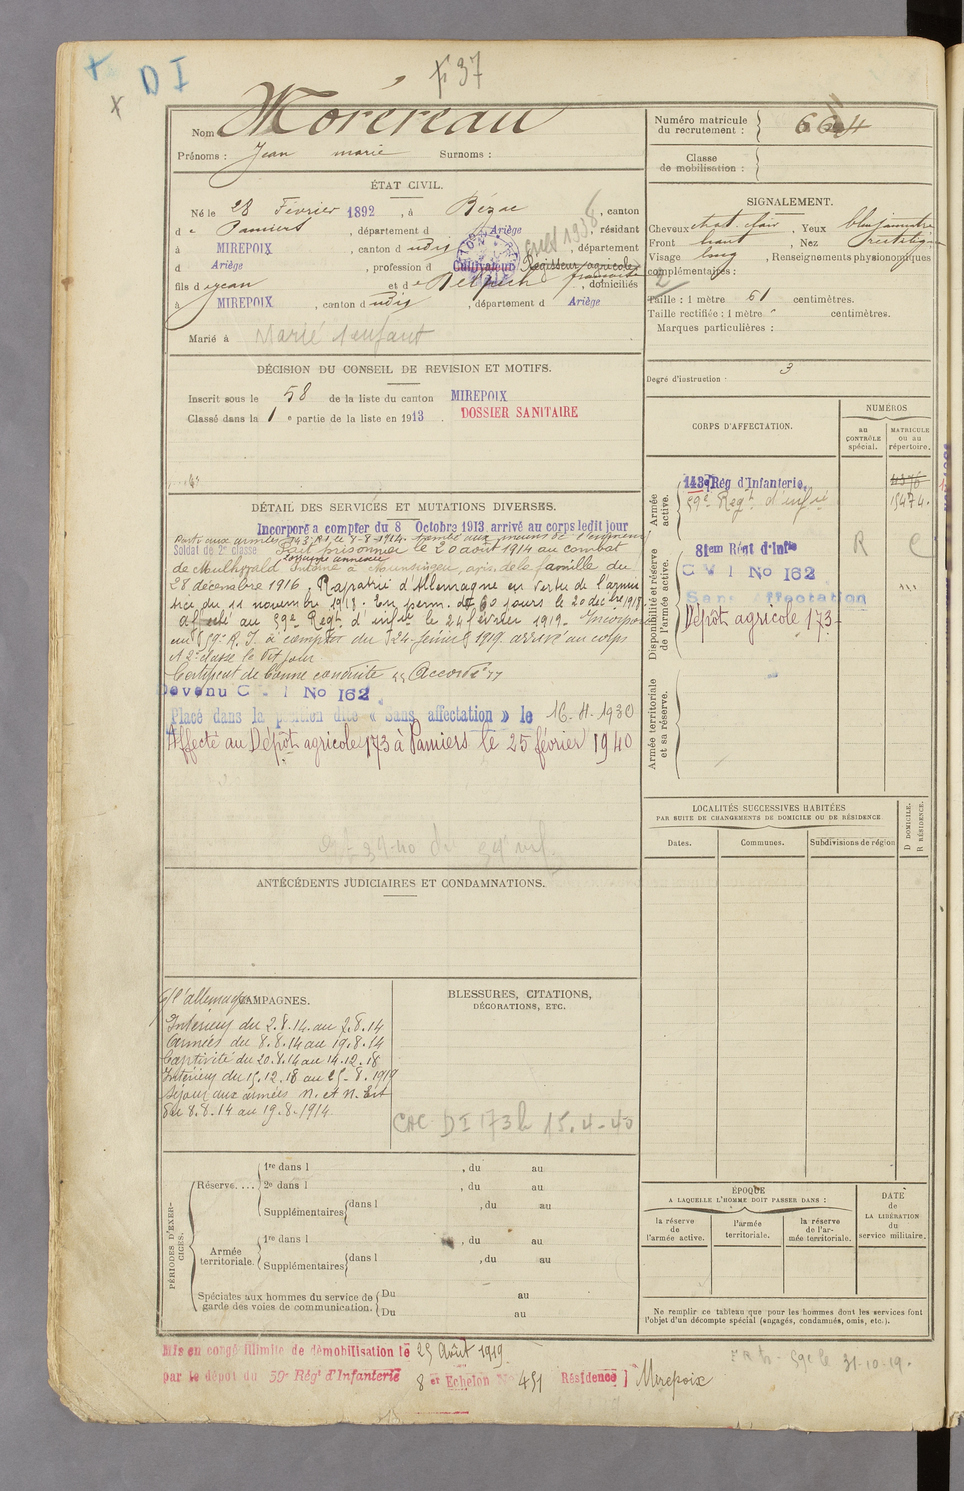 +
x
D I
37
Nom Moréreau
Prénoms : Jean marie Surnoms :
ÉTAT CIVIL.
Né le 28 Février 1892, à Bézac, canton
de Pamiers, département d Ariège, résidant
à MIREPOIX, canton d udit, département
d Ariège, profession d Cultivateur Régisseur agricole
fils de Jean et de Delpech françoise, domiciliés
à MIREPOIX, canton dudit, département d Ariège
Marié à Marié 1 enfant
DÉCISION DU CONSEIL DE REVISION ET MOTIFS.
Inscrit sous le 58 de la liste du canton MIREPOIX
Classé dans la 1e partie de la liste en 1913. DOSSIER SANITAIRE
DÉTAIL DES SERVICES ET MUTATIONS DIVERSES.
Incorporé a compter du 8 Octobre 1913 arrivé au corps ledit jour
Parti aux armées 143 RI le 8-8-1914. tombé aux mains de l'ennemi
Soldat de 2e classe Fait prisonnier le 20 août 1914 au combat
Lorraine annexée
de Meulhwald Interné à Munsingen, avis de la famille du
28 décembre 1916. Rapatrié d'Allemagne en vertu de l'armis
tice du 11 novembre 1918. En perm. de 60 jours le 20 décbre 1918
Affecté au 59e Regt d'infie le 24 février 1919. Incorporé
au 59e R.I. à compter du 24 février 1919 arrivé au corps
et 2e classe le dit jour
Certificat de bonne conduite "Accordé"
Devenu C V I No 162
Placé dans la position dite « Sans affectation » le 16-11-1930
Affecté au Dépôt agricole 173 à Pamiers le 25 février 1940
ANTÉCÉDENTS JUDICIAIRES ET CONDAMNATIONS.
c/ l'allemagne CAMPAGNES.
Intérieur du 2.8.14 au 7.8.14
Armées du 8.8.14 au 19.8.14
Captivité du 20.8.14 au 14.12.18
Intérieur du 15.12.18 au 25-8.1919
Séjour aux armées N. et N. Est
du 8.8.14 au 19.8.1914.
BLESSURES, CITATIONS,
DÉCORATIONS, ETC.
CAC DI 173 le 15.4-40
PÉRIODES D'EXERCICES.
Réserve.... 1re dans l , du au
2e dans l , du au
Supplémentaires dans l , du au
Armée territoriale. 1re dans l , du au
Supplémentaires dans l , du au
Spéciales aux hommes du service de garde des voies de communication. Du au
Du au
Mis en congé illimité de démobilisation le 25 Août 1919
par le dépôt du 59e Régt d'Infanterie 8 et Echelon No 451 Résidence Mirepoix
Numéro matricule du recrutement : 664
Classe de mobilisation :
SIGNALEMENT.
Cheveux chat. clair, Yeux bleu jaunâtre
Front haut, Nez rectiligne
Visage long, Renseignements physionomiques
complémentaires :
Taille : 1 mètre 61 centimètres.
Taille rectifiée : 1 mètre centimètres.
Marques particulières :
Degré d'instruction : 3
CORPS D'AFFECTATION.
NUMÉROS
au CONTRÔLE spécial.
MATRICULE ou au répertoire.
Armée active.
143e Rég d'Infanterie. 4376
59e Regt d'infie 15474.
Disponibilité et réserve de l'armée active.
81eme Régt d'Infie R C
C V I No 162
Sans Affectation
Dépôt agricole 173
Armée territoriale et sa réserve.
LOCALITÉS SUCCESSIVES HABITÉES
PAR SUITE DE CHANGEMENTS DE DOMICILE OU DE RÉSIDENCE
Dates. Communes. Subdivisions de région
D DOMICILE.
R RÉSIDENCE.
ÉPOQUE
A LAQUELLE L'HOMME DOIT PASSER DANS :
la réserve de l'armée active.
l'armée territoriale.
la réserve de l'armée territoriale.
DATE de LA LIBÉRATION du service militaire.
Ne remplir ce tableau que pour les hommes dont les services font
l'objet d'un décompte spécial (engagés, condamnés, omis, etc.).
59e le 31-10-19.